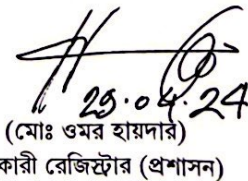 25.04.24
(মোঃ ওমর হায়দার)
কারী রেজিস্ট্রার (প্রশাসন)